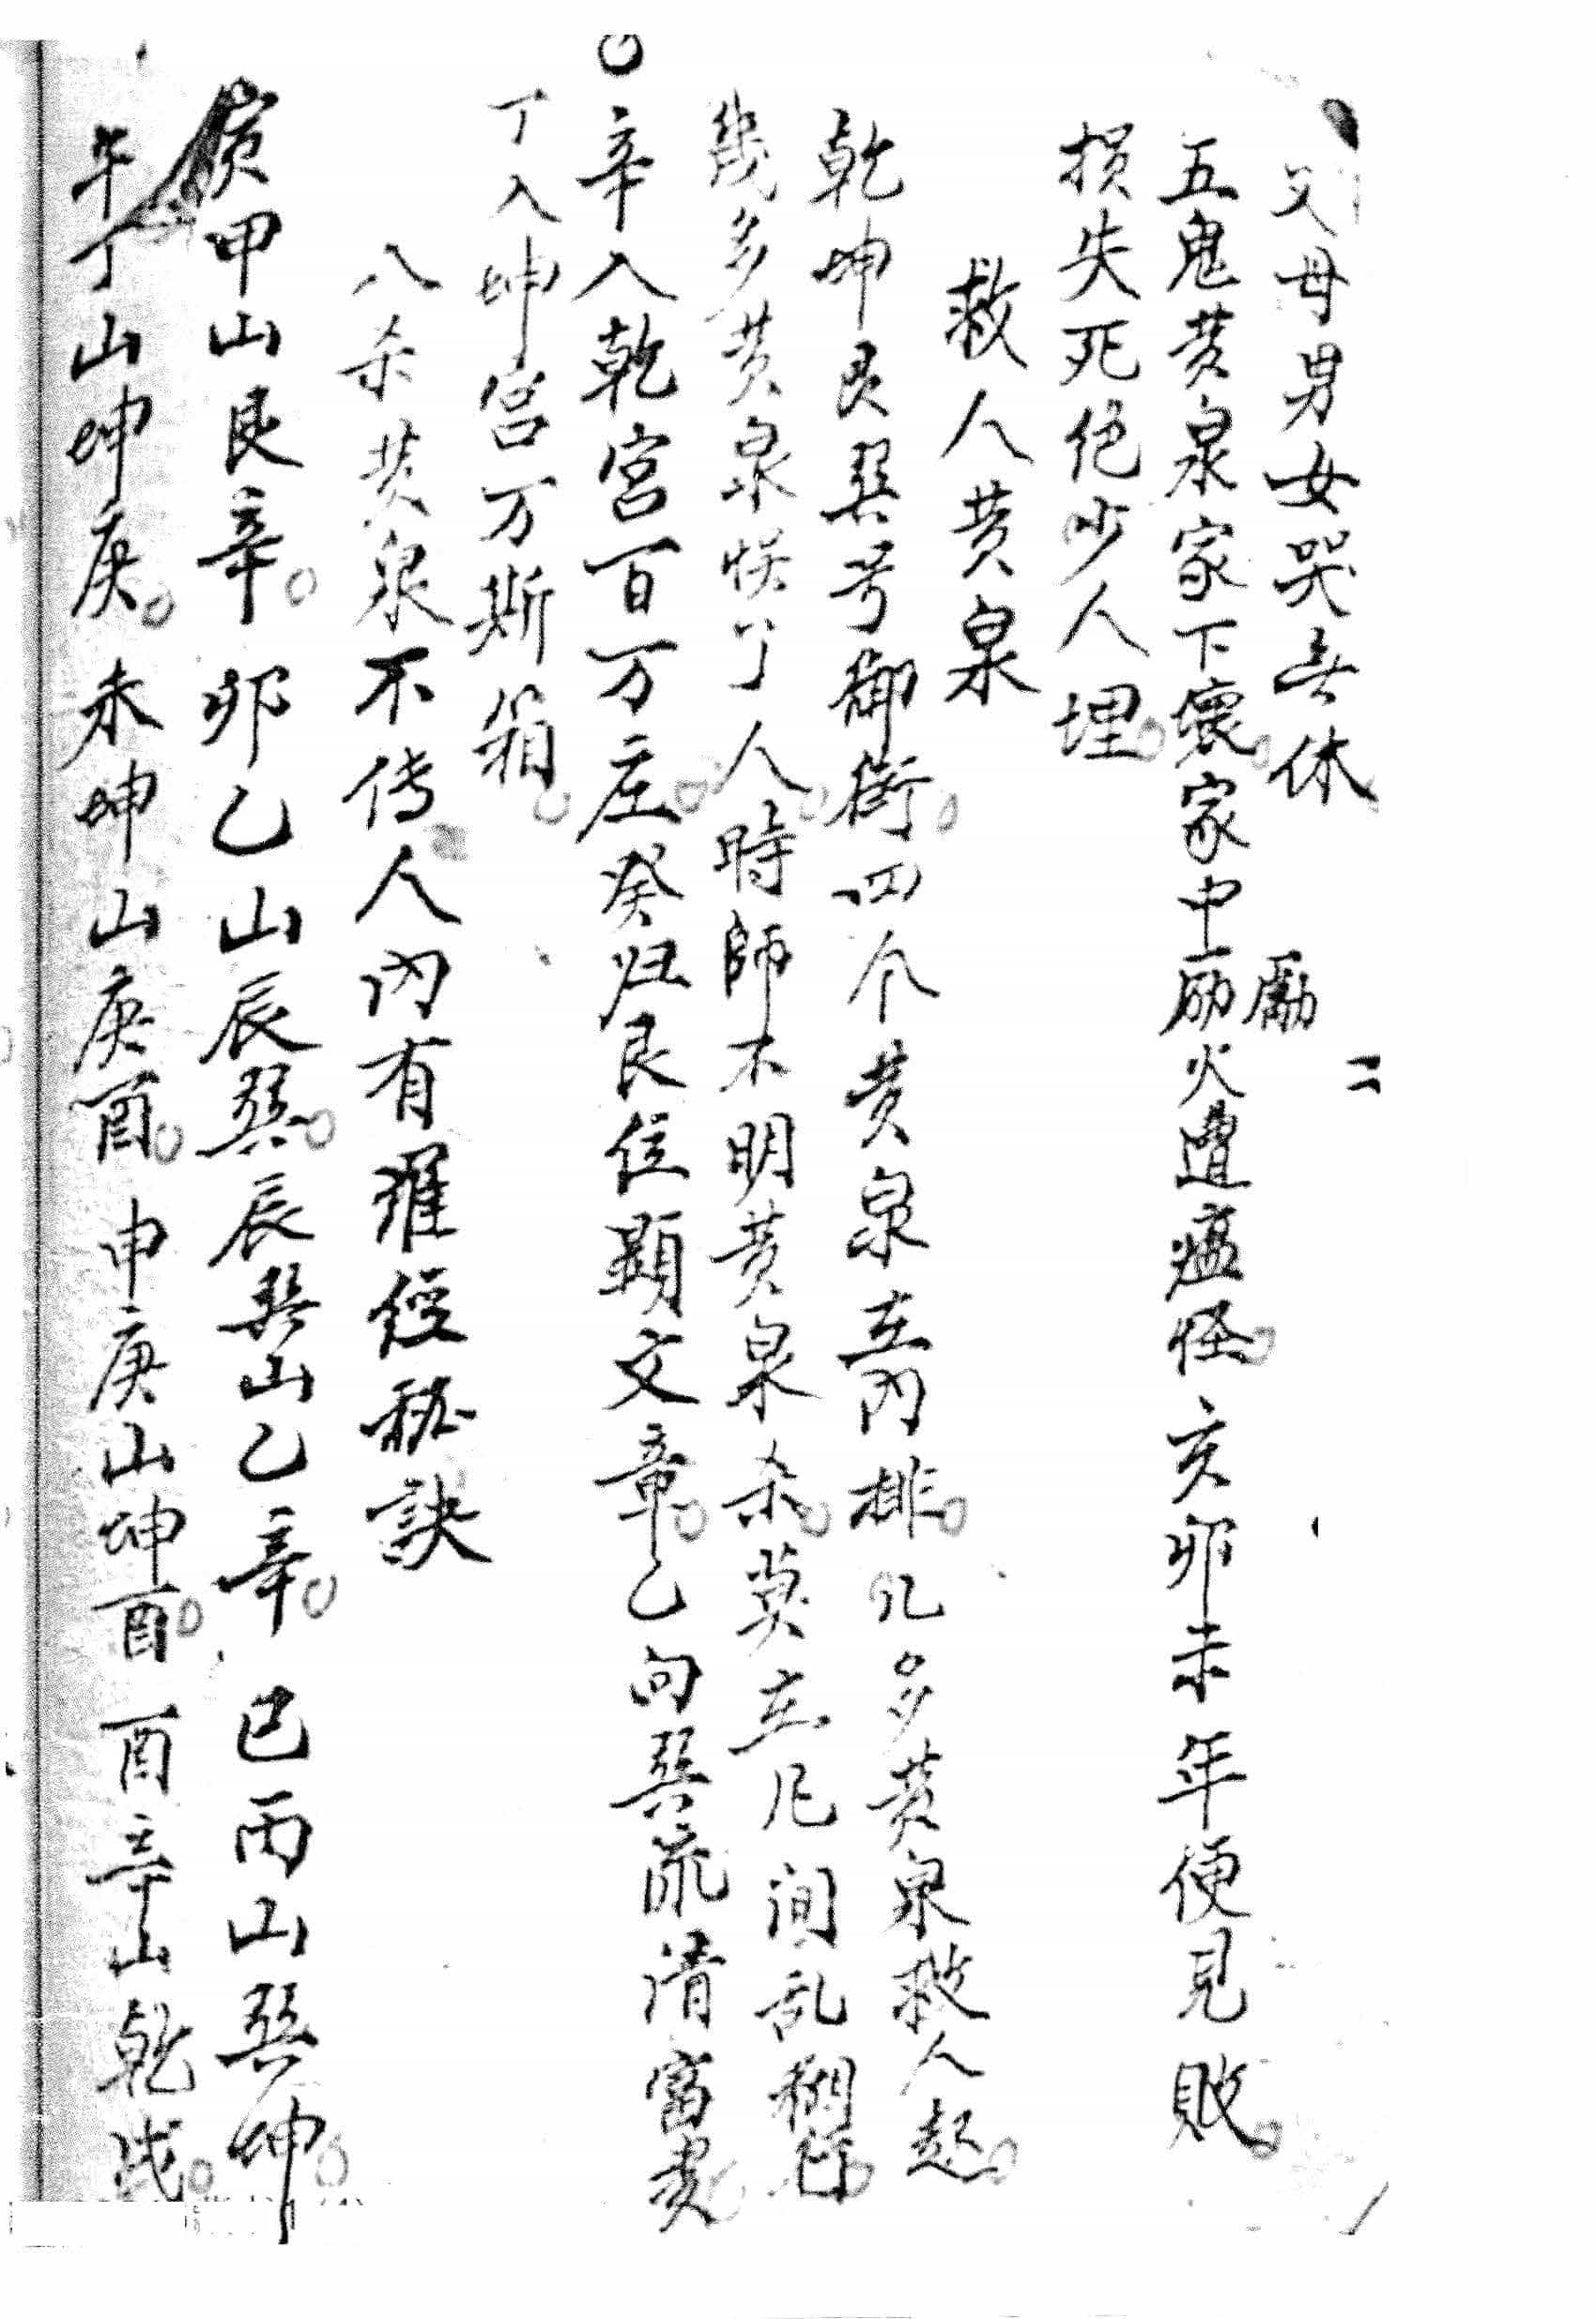 父母男女哭无休
五鬼黄泉家下壞家中励火遭瘟怪亥卯未年便見敗
勵
二
損失死绝少人埋
救人黄泉
乾坤艮巽号御街四个黄泉立内排几多黄泉救人起
幾多黄泉悮了人時師不明黄泉杀莫立凡间乱糊行
辛入乾宫百万庄癸归艮位顕文章乙向巽流清富贵
丁入坤宫万斯箱
八杀黄泉不传人内有羅经秘訣
寅甲山艮辛卯乙山辰巽辰巽山乙辛巳丙山巽坤
午丁山坤庚未坤山庚酉申庚山坤酉酉辛山乾戌